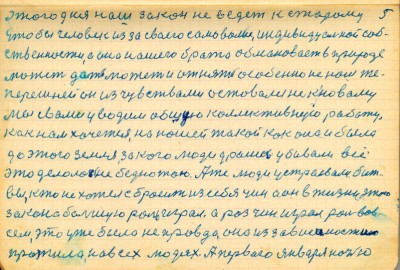 этого дня наш закон не ведет к старому 5
чтобы человек из за своего самоволие, индивидуалной соб-
ственности, а она нашего брата обмановаеть в природе
может дать может и отнять особенно не ном те-
перешней он из чувствами остовали не к новому
мы с вами уводим общую коллективную работу,
как нам хочется, на нашей такой как она и была
до этого земля, за кого люди дралис убивали все
это делалос не беднотою. А те люди устраевали бит-
вы, кто не хотел сбросит из себя чин а он в жизни этого
закона болшую рол играл. а роз чин играл рол вов
сем, это уже было не правда, она из зависемостию
прожила, на всех людях. А первого января ночю